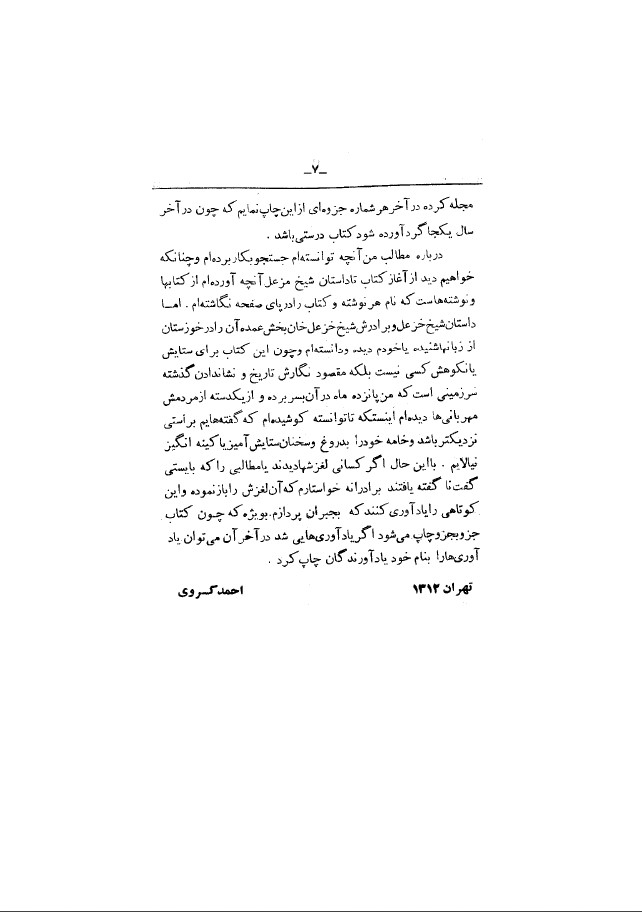 _۷_
مجله کرده در آخر هر شماره جزوه‌ای از این چاپ نمایم که چون در آخر
سال یکجا گرد آورده شود کتاب درستی باشد .
درباره مطالب من آنچه توانسته‌ام جستجو بکار برده‌ام و چنانکه
خواهیم دید از آغاز کتاب تا داستان شیخ مزعل آنچه آورده‌ام از کتابها
و نوشته‌هاست که نام هر نوشته و کتاب را در پای صفحه نگاشته‌ام . امـا
داستان شیخ خزعل و برادرش شیخ خزعل خان بخش عمده آن را در خوزستان
از زبانها شنیده یا خودم دیده و دانسته‌ام و چون این کتاب برای ستایش
یا نکوهش کسی نیست بلکه مقصود نگارش تاریخ و نشاندادن گذشته
سرزمینی است که من پانزده ماه در آن بسر برده و از یکدسته از مردمش
مهربانی‌ها دیده‌ام اینستکه تا توانسته کوشیده‌ام که گفته‌هایم براستی
نزدیکتر باشد و خامه خود را بدروغ و سخنان ستایش آمیز یا کینه انگیز
نیالایم . با این حال اگر کسانی لغزشها دیدند یا مطالبی را که بایستی
گفت نا گفته یافتند برادرانه خواستارم که آن لغزش را باز نموده و این
کوتاهی را یادآوری کنند که بجبران پردازم. بویژه که چـون کتاب
جزو بجزو چاپ می‌شود اگر یادآوری‌هایی شد در آخر آن می‌توان یاد
آوری‌ها را بنام خود یادآورندگان چاپ کرد .
تهران ۱۳۱۲ احمد کسروی